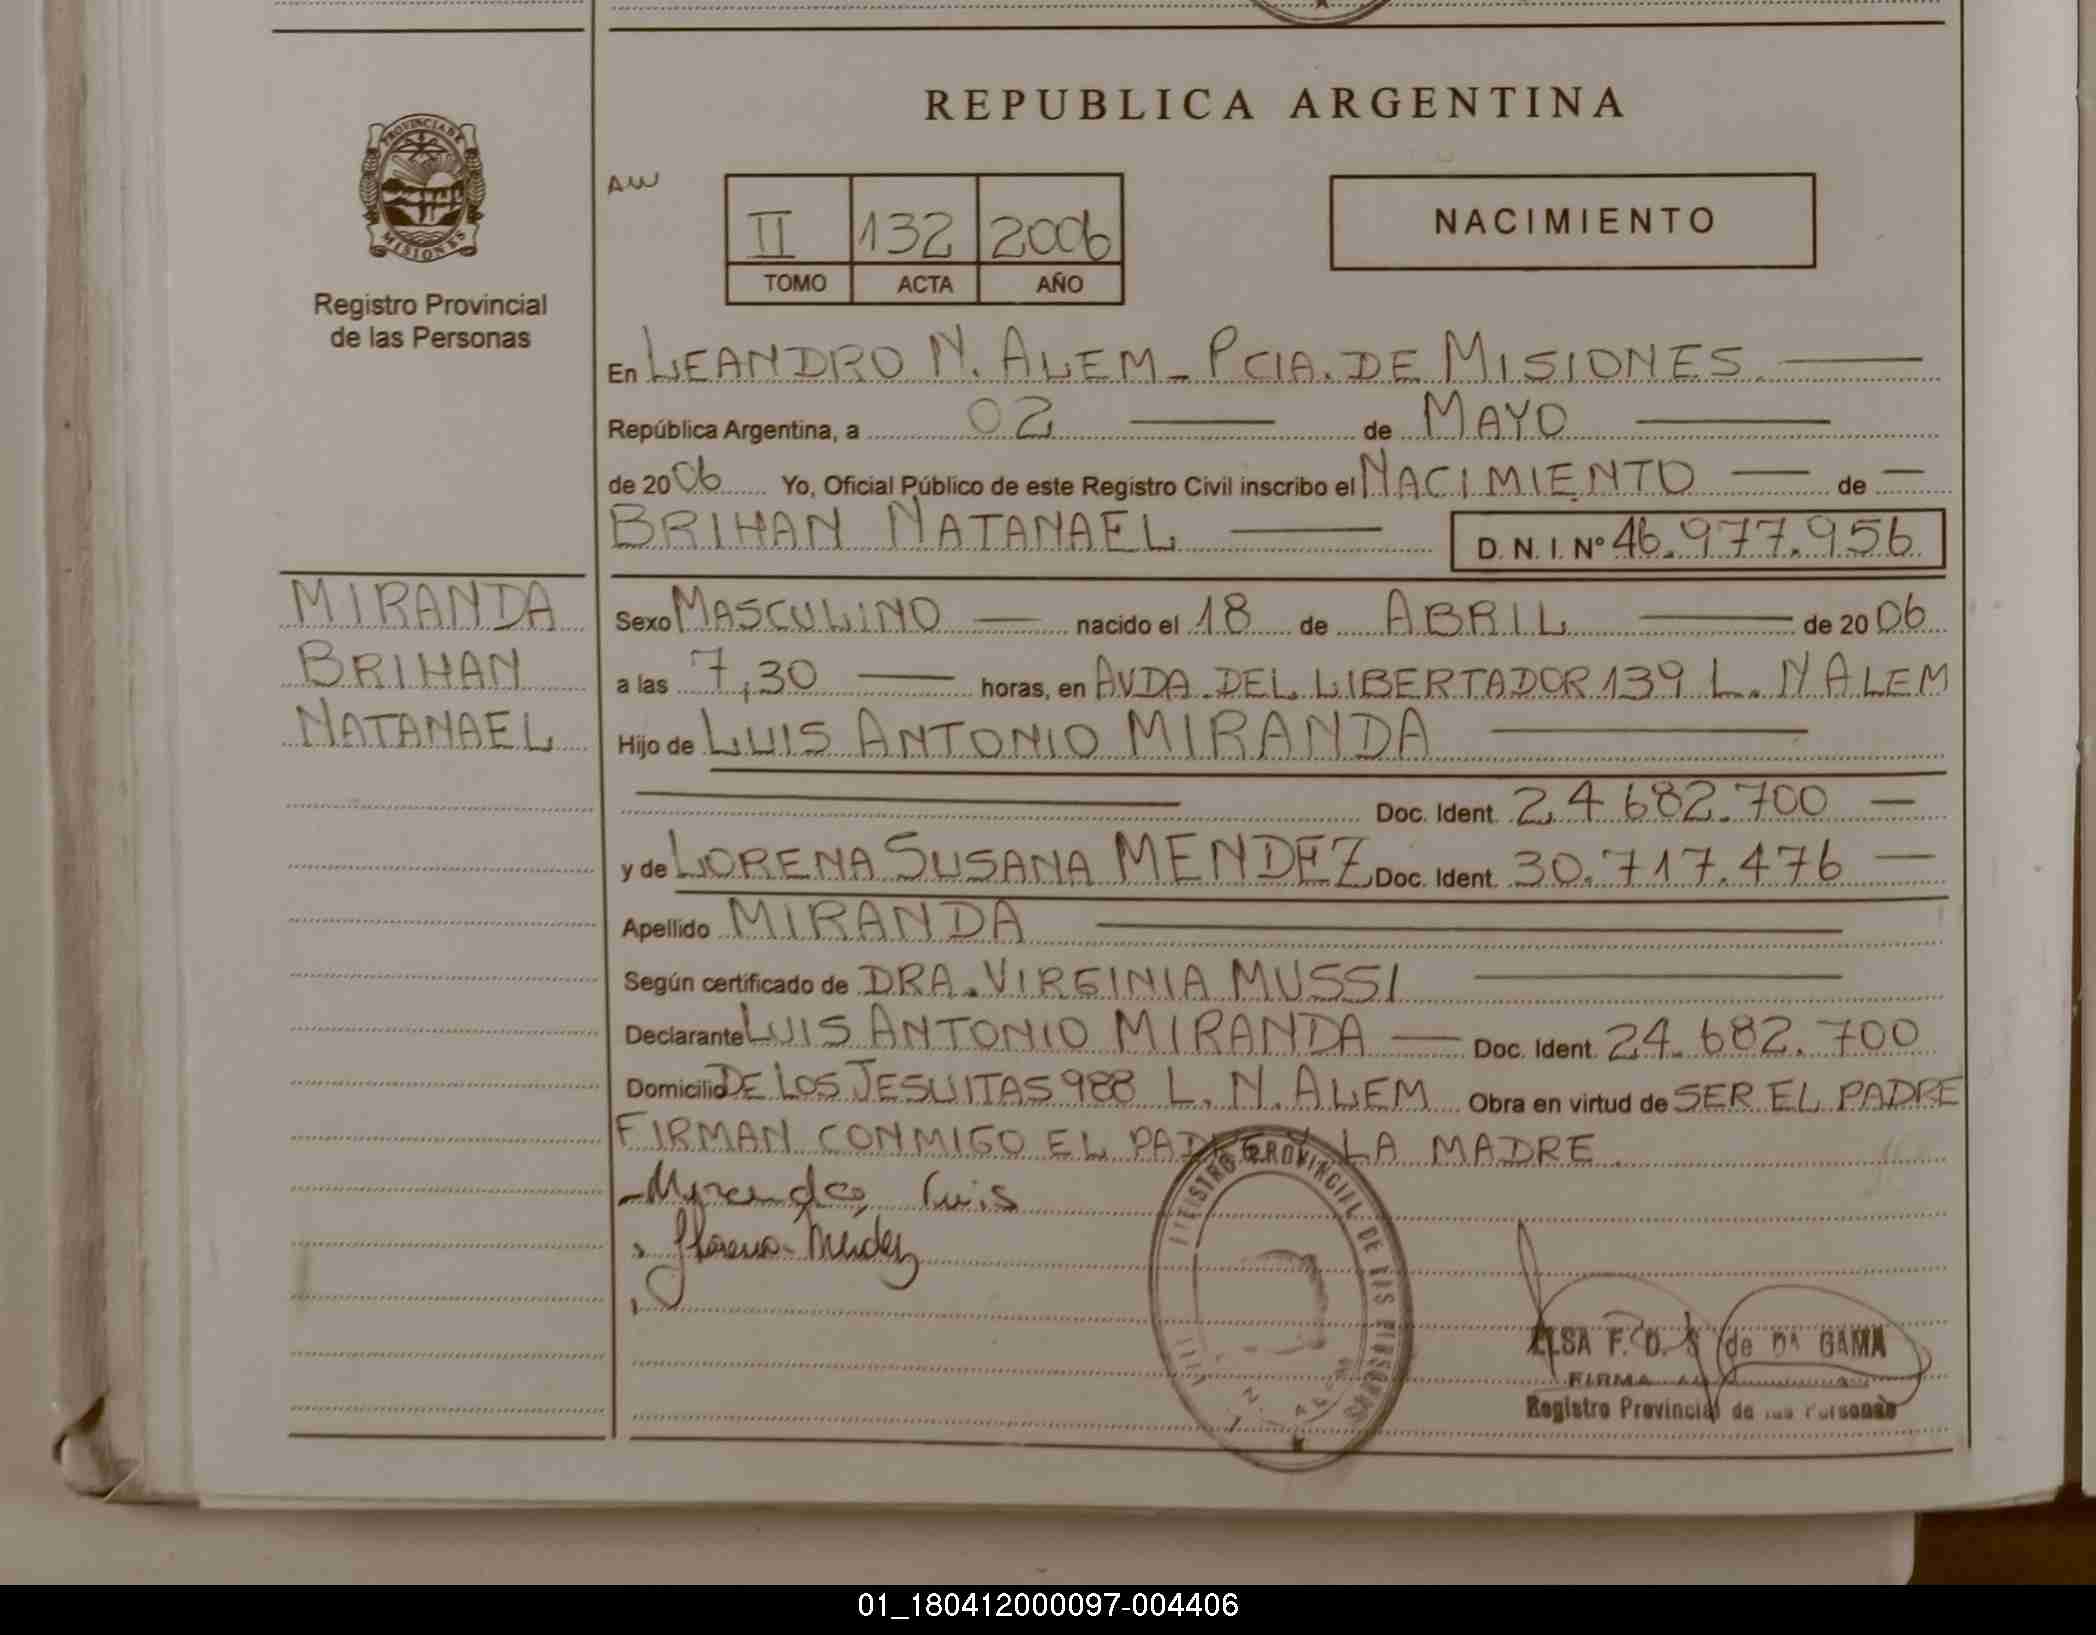 REPUBLICA ARGENTINA
PROVINCIA DE
MISIONES
Registro Provincial
de las Personas
AW
II 132 2006
TOMO ACTA AÑO
NACIMIENTO
En LEANDRO N. ALEM - PCIA. DE MISIONES
República Argentina, a 02 de MAYO
de 2006 Yo, Oficial Público de este Registro Civil inscribo el NACIMIENTO de
BRIHAN NATANAEL D. N. I. Nº 46.977.956
MIRANDA
BRIHAN
NATANAEL
Sexo MASCULINO nacido el 18 de ABRIL de 2006
a las 7,30 horas, en AVDA. DEL LIBERTADOR 139 L. N ALEM
Hijo de LUIS ANTONIO MIRANDA
Doc. Ident. 24.682.700
y de LORENA SUSANA MENDEZ Doc. Ident. 30.717.476
Apellido MIRANDA
Según certificado de DRA. VIRGINIA MUSSI
Declarante LUIS ANTONIO MIRANDA Doc. Ident. 24.682.700
Domicilio DE LOS JESUITAS 988 L. N. ALEM Obra en virtud de SER EL PADRE
FIRMAN CONMIGO EL PADRE Y LA MADRE
Miranda Luis
Lorena Méndez
REGISTRO PROVINCIAL DE LAS PERSONAS
L. N. ALEM
ELSA F. D. S de DA GAMA
FIRMA
Registro Provincial de las Personas
01_180412000097-004406